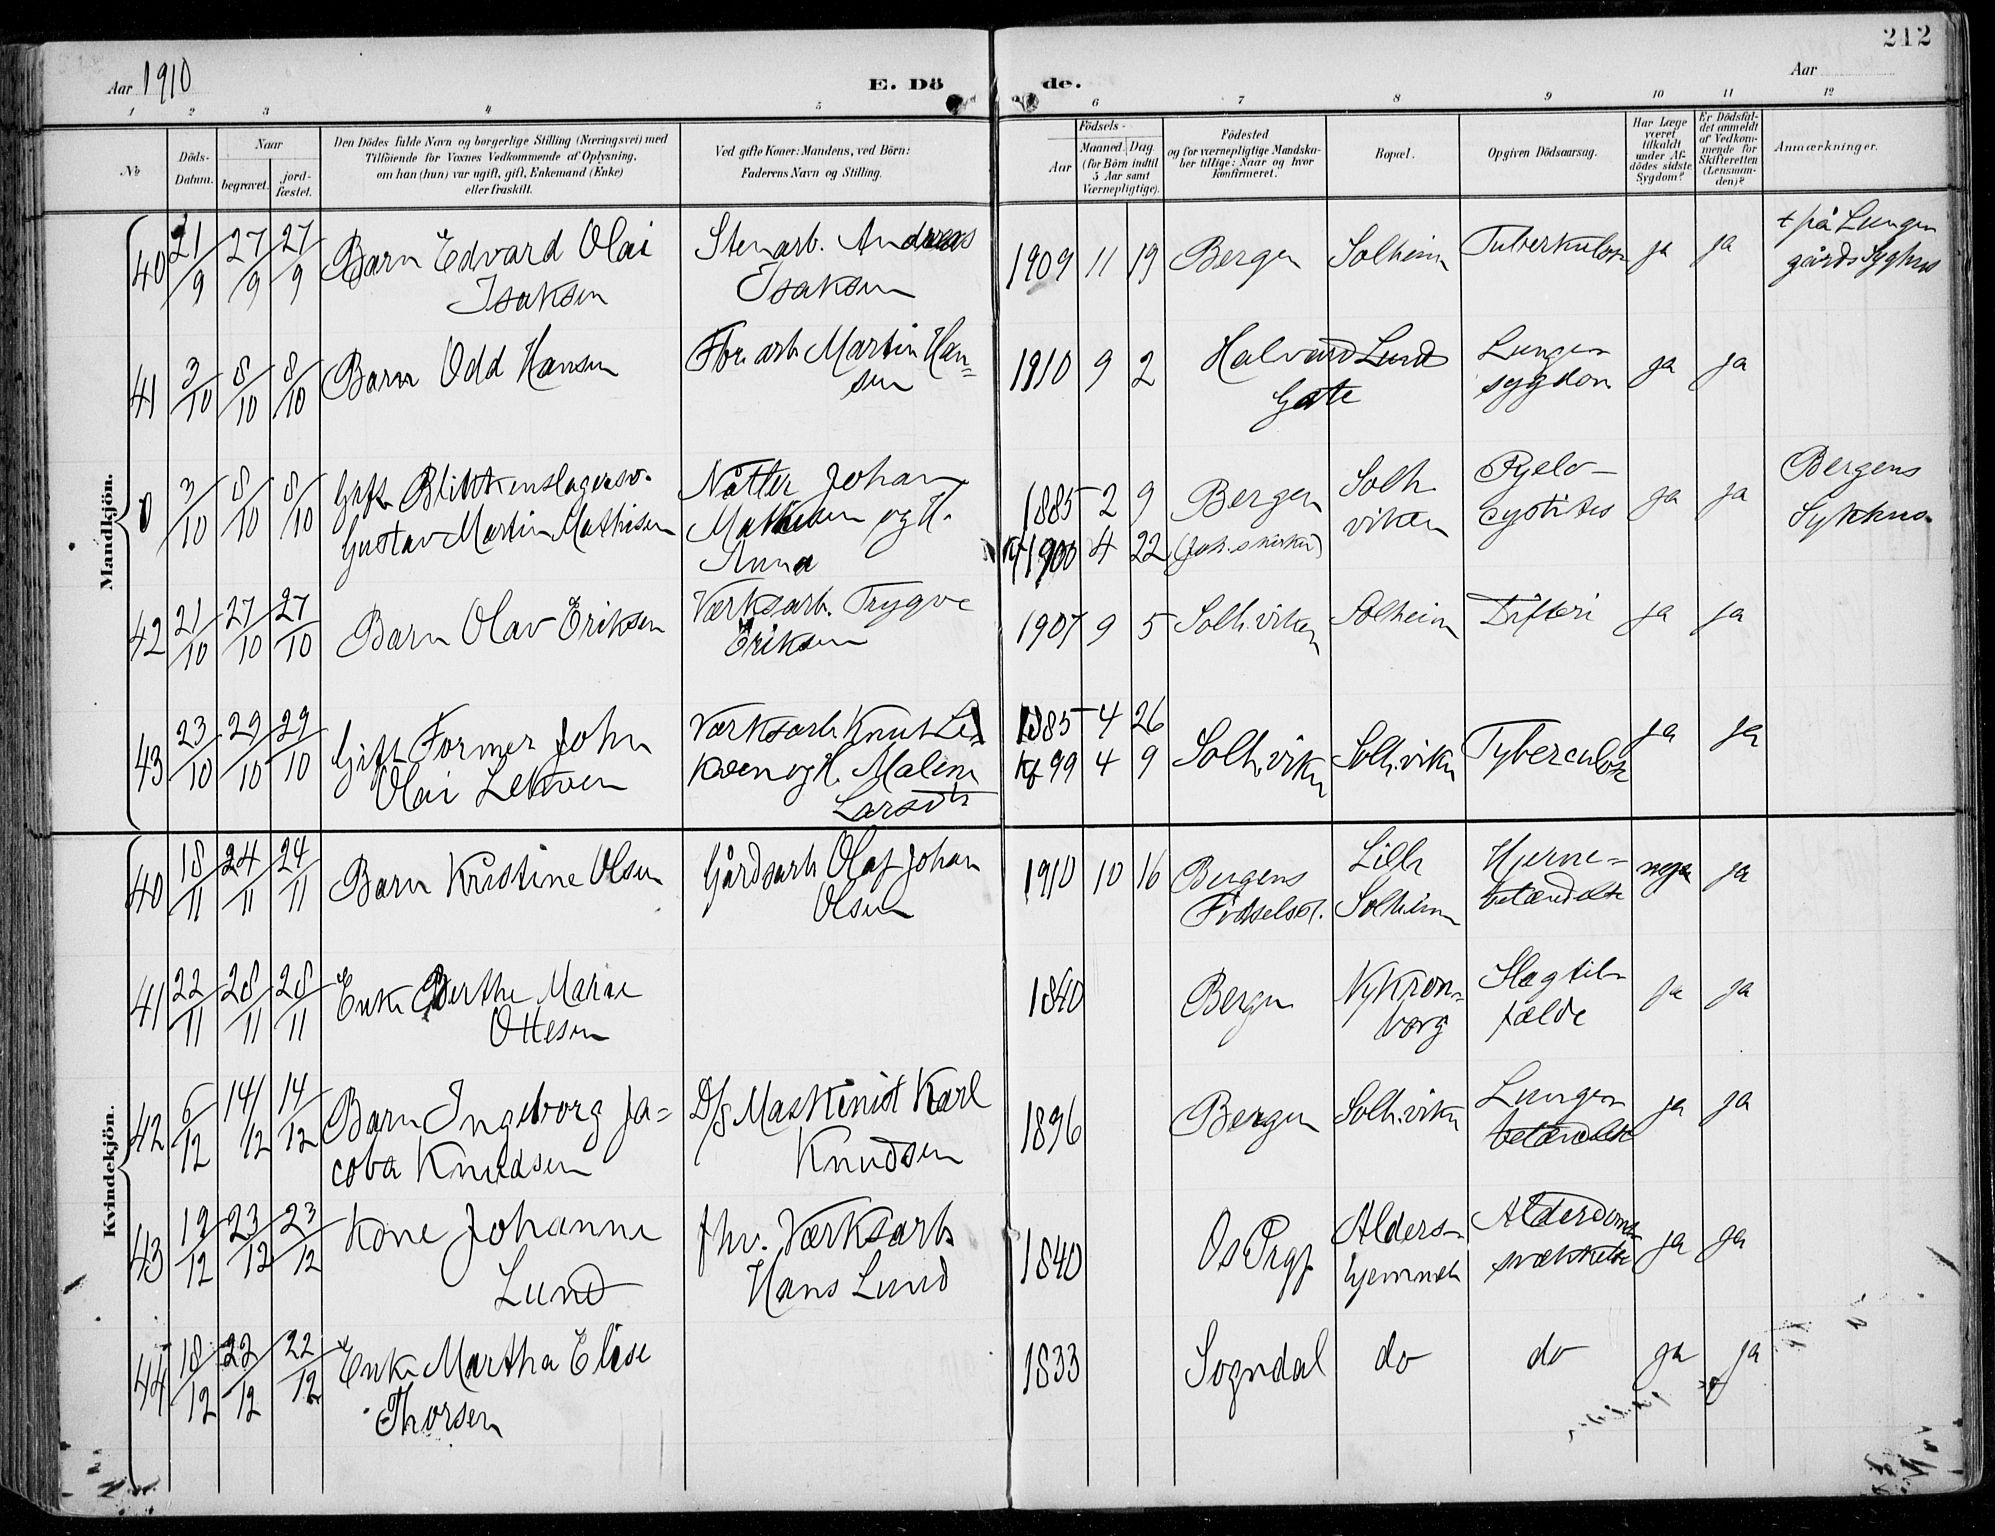 212
Aar 1910
E. Dö
de.
Aar
1 2 3 4 5 6 7 8 9 10 11 12
No
Döds-
Datum.
Naar
begravet.
jord-
fæstet.
Den Dödes fulde Navn og borgerlige Stilling (Næringsvei) med
Tilföiende for Voxnes Vedkommende af Oplysning,
om han (hun) var ugift, gift, Enkemand (Enke)
eller fraskilt.
Ved gifte Koner: Mandens, ved Börn:
Faderens Navn og Stilling.
Födsels-
Aar
Maaned.
Dag.
(for Börn indtil
5 Aar samt
Værnepligtige).
Födested
og for værnepligtige Mandska-
ber tillige: Naar og hvor
konfirmeret.
Bopæl.
Opgiven Dödsaarsag.
Har Læge
været
tilkaldt
under Af-
dödes sidste
Sygdom?
Er Dödsfal-
det anmeldt
af Vedkom-
mende for
Skifteretten
(Lensman-
den)?
Anmærkninger.
Mandkjön.
40 21/9 27/9 27/9 Barn Edvard Olai
Isaksen
Stenarb. Andreas
Isaksen
1909 11 19 Bergen Solheim Tuberkulose ja ja
+ på Lungen
gårds Syghus
41 3/10 8/10 8/10 Barn Odd Hansen
Martin Han=
sen
1910 9 2 Halvard Lund
Gate
Lunge
sygdom
ja ja
3/10 8/10 8/10 Gift Blikkenslagersv.
Gustav Martin Mathisen
Johan
Mathisen og H.
Anna
1885 2 9 Bergen
Kf 1900 4 22 (Joh.skirken)
Solh
viken
Pyelo-
cystites
ja ja
Bergens
Sykhus
42 21/10 27/10 27/10 Barn Olav Eriksen
Værksarb. Trygve
Eriksen
1907 9 5 Solh.viken Solheim Difteri ja ja
43 23/10 29/10 29/10 Gift Former John
Olai Lekven
Værksarb Knut Le
kven og H. Malene
Larsdtr
1885 4 26
Kf 99 4 9 Solh.viken Solh.viken Tyberculose
ja ja
Kvindekjön.
40 18/11 24/11 24/11 Barn Kristine Olsen
Gårdsarb Olaf Johan
Olsen
1910 10 16 Bergens
Födselsst.
Lille
Solheim
Hjerne=
betændelse
nej ja
41 22/11 28/11 28/11 Enke Berthe Marie
Ottesen
1840 Bergen
Nykron=
borg
Slagtil=
fælde
ja ja
42 6/12 14/12 14/12 Barn Ingeborg Ja=
coba Knudsen
D/S Maskinist Karl
Knudsen
1896 Bergen Solh.viken
Lunge
betændelse
ja ja
43 19/12 23/12 23/12 Kone Johanne
Lund
fhv. Værksarb
Hans Lund
1840 Os Prgj.
Alders=
hjemmet
Alderdoms
svækkelse
ja ja
44 18/12 22/12 22/12 Enke Martha Elise
Thorsen
1833 Sogndal do do ja ja